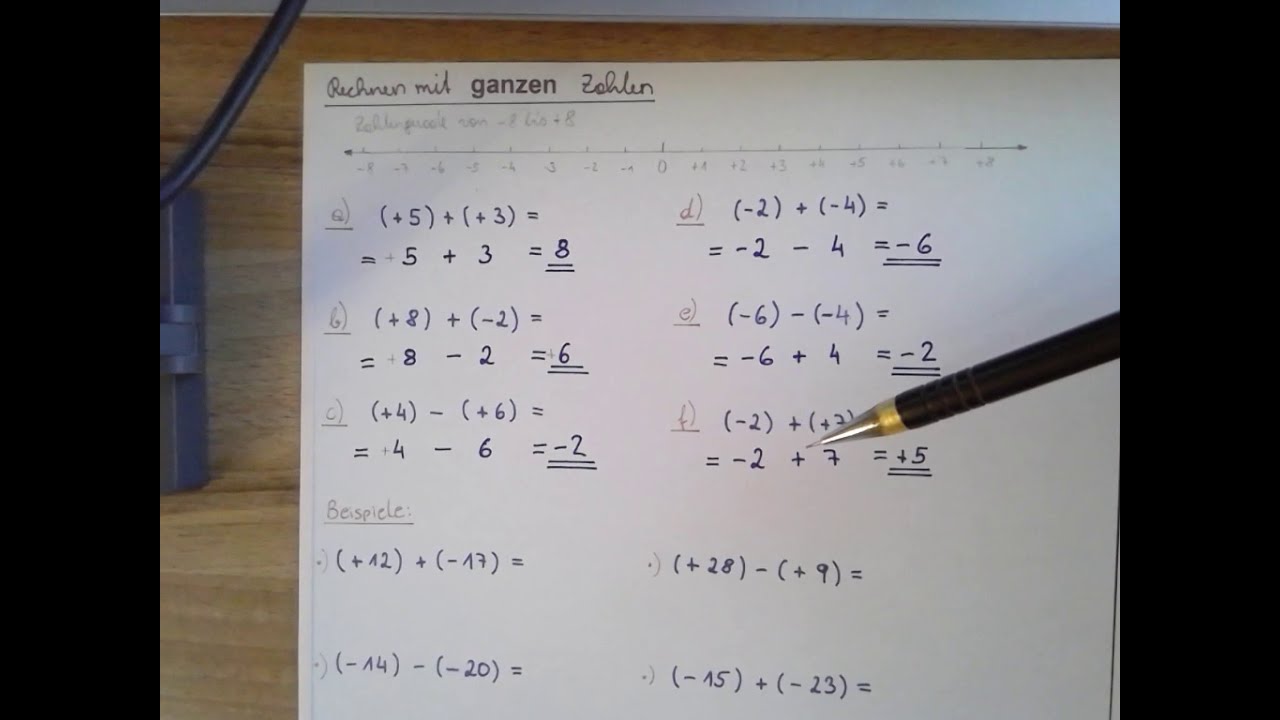 Rechnen mit ganzen Zahlen
Zahlengerade von -8 bis +8
-8 -7 -6 -5 -4 -3 -2 -1 0 +1 +2 +3 +4 +5 +6 +7 +8
a) (+5) + (+3) =
= +5 + 3 = 8
b) (+8) + (-2) =
= +8 - 2 = +6
c) (+4) - (+6) =
= +4 - 6 = -2
d) (-2) + (-4) =
= -2 - 4 = -6
e) (-6) - (-4) =
= -6 + 4 = -2
f) (-2) + (+7)
= -2 + 7 = +5
Beispiele:
·) (+12) + (-17) =
·) (+28) - (+9) =
·) (-14) - (-20) =
·) (-15) + (-23) =